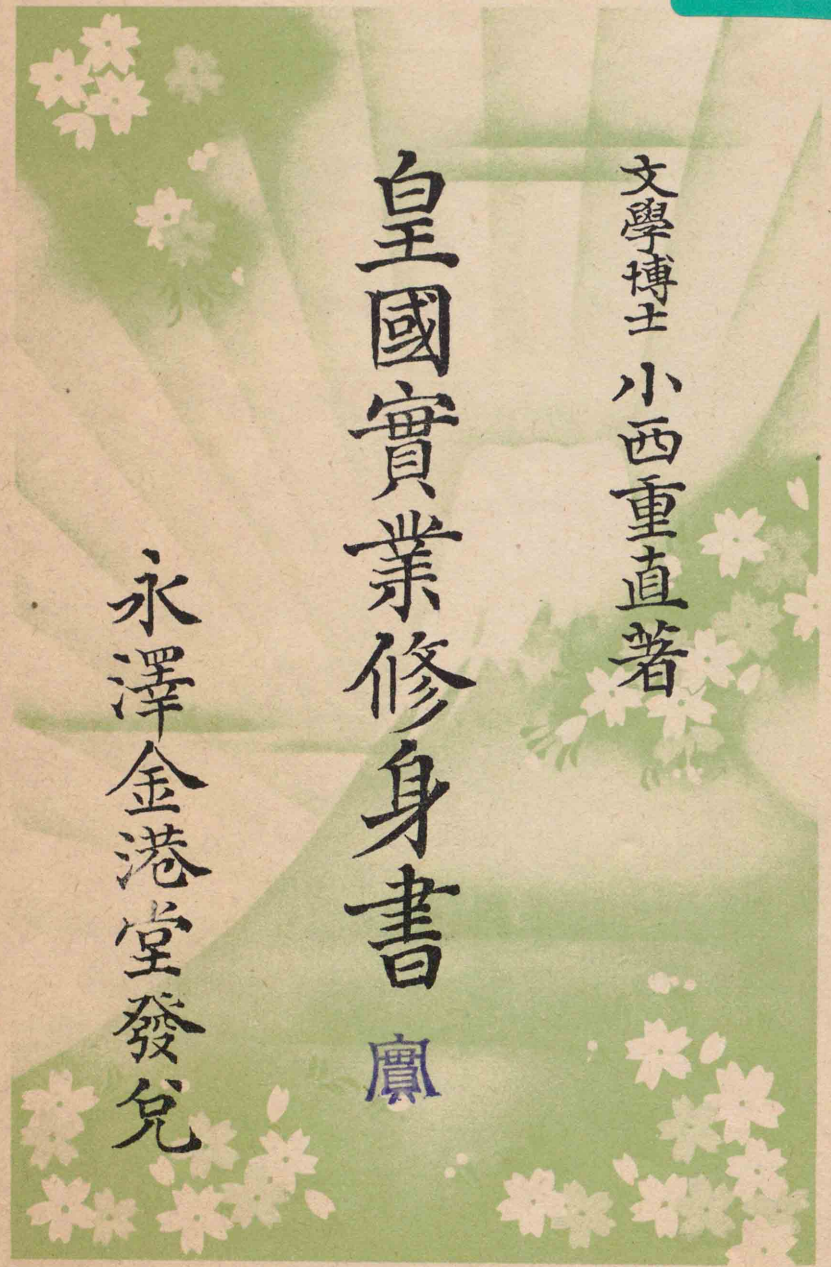 文學博士 小西重直著
皇國實業修身書 實
永澤金港堂發兌